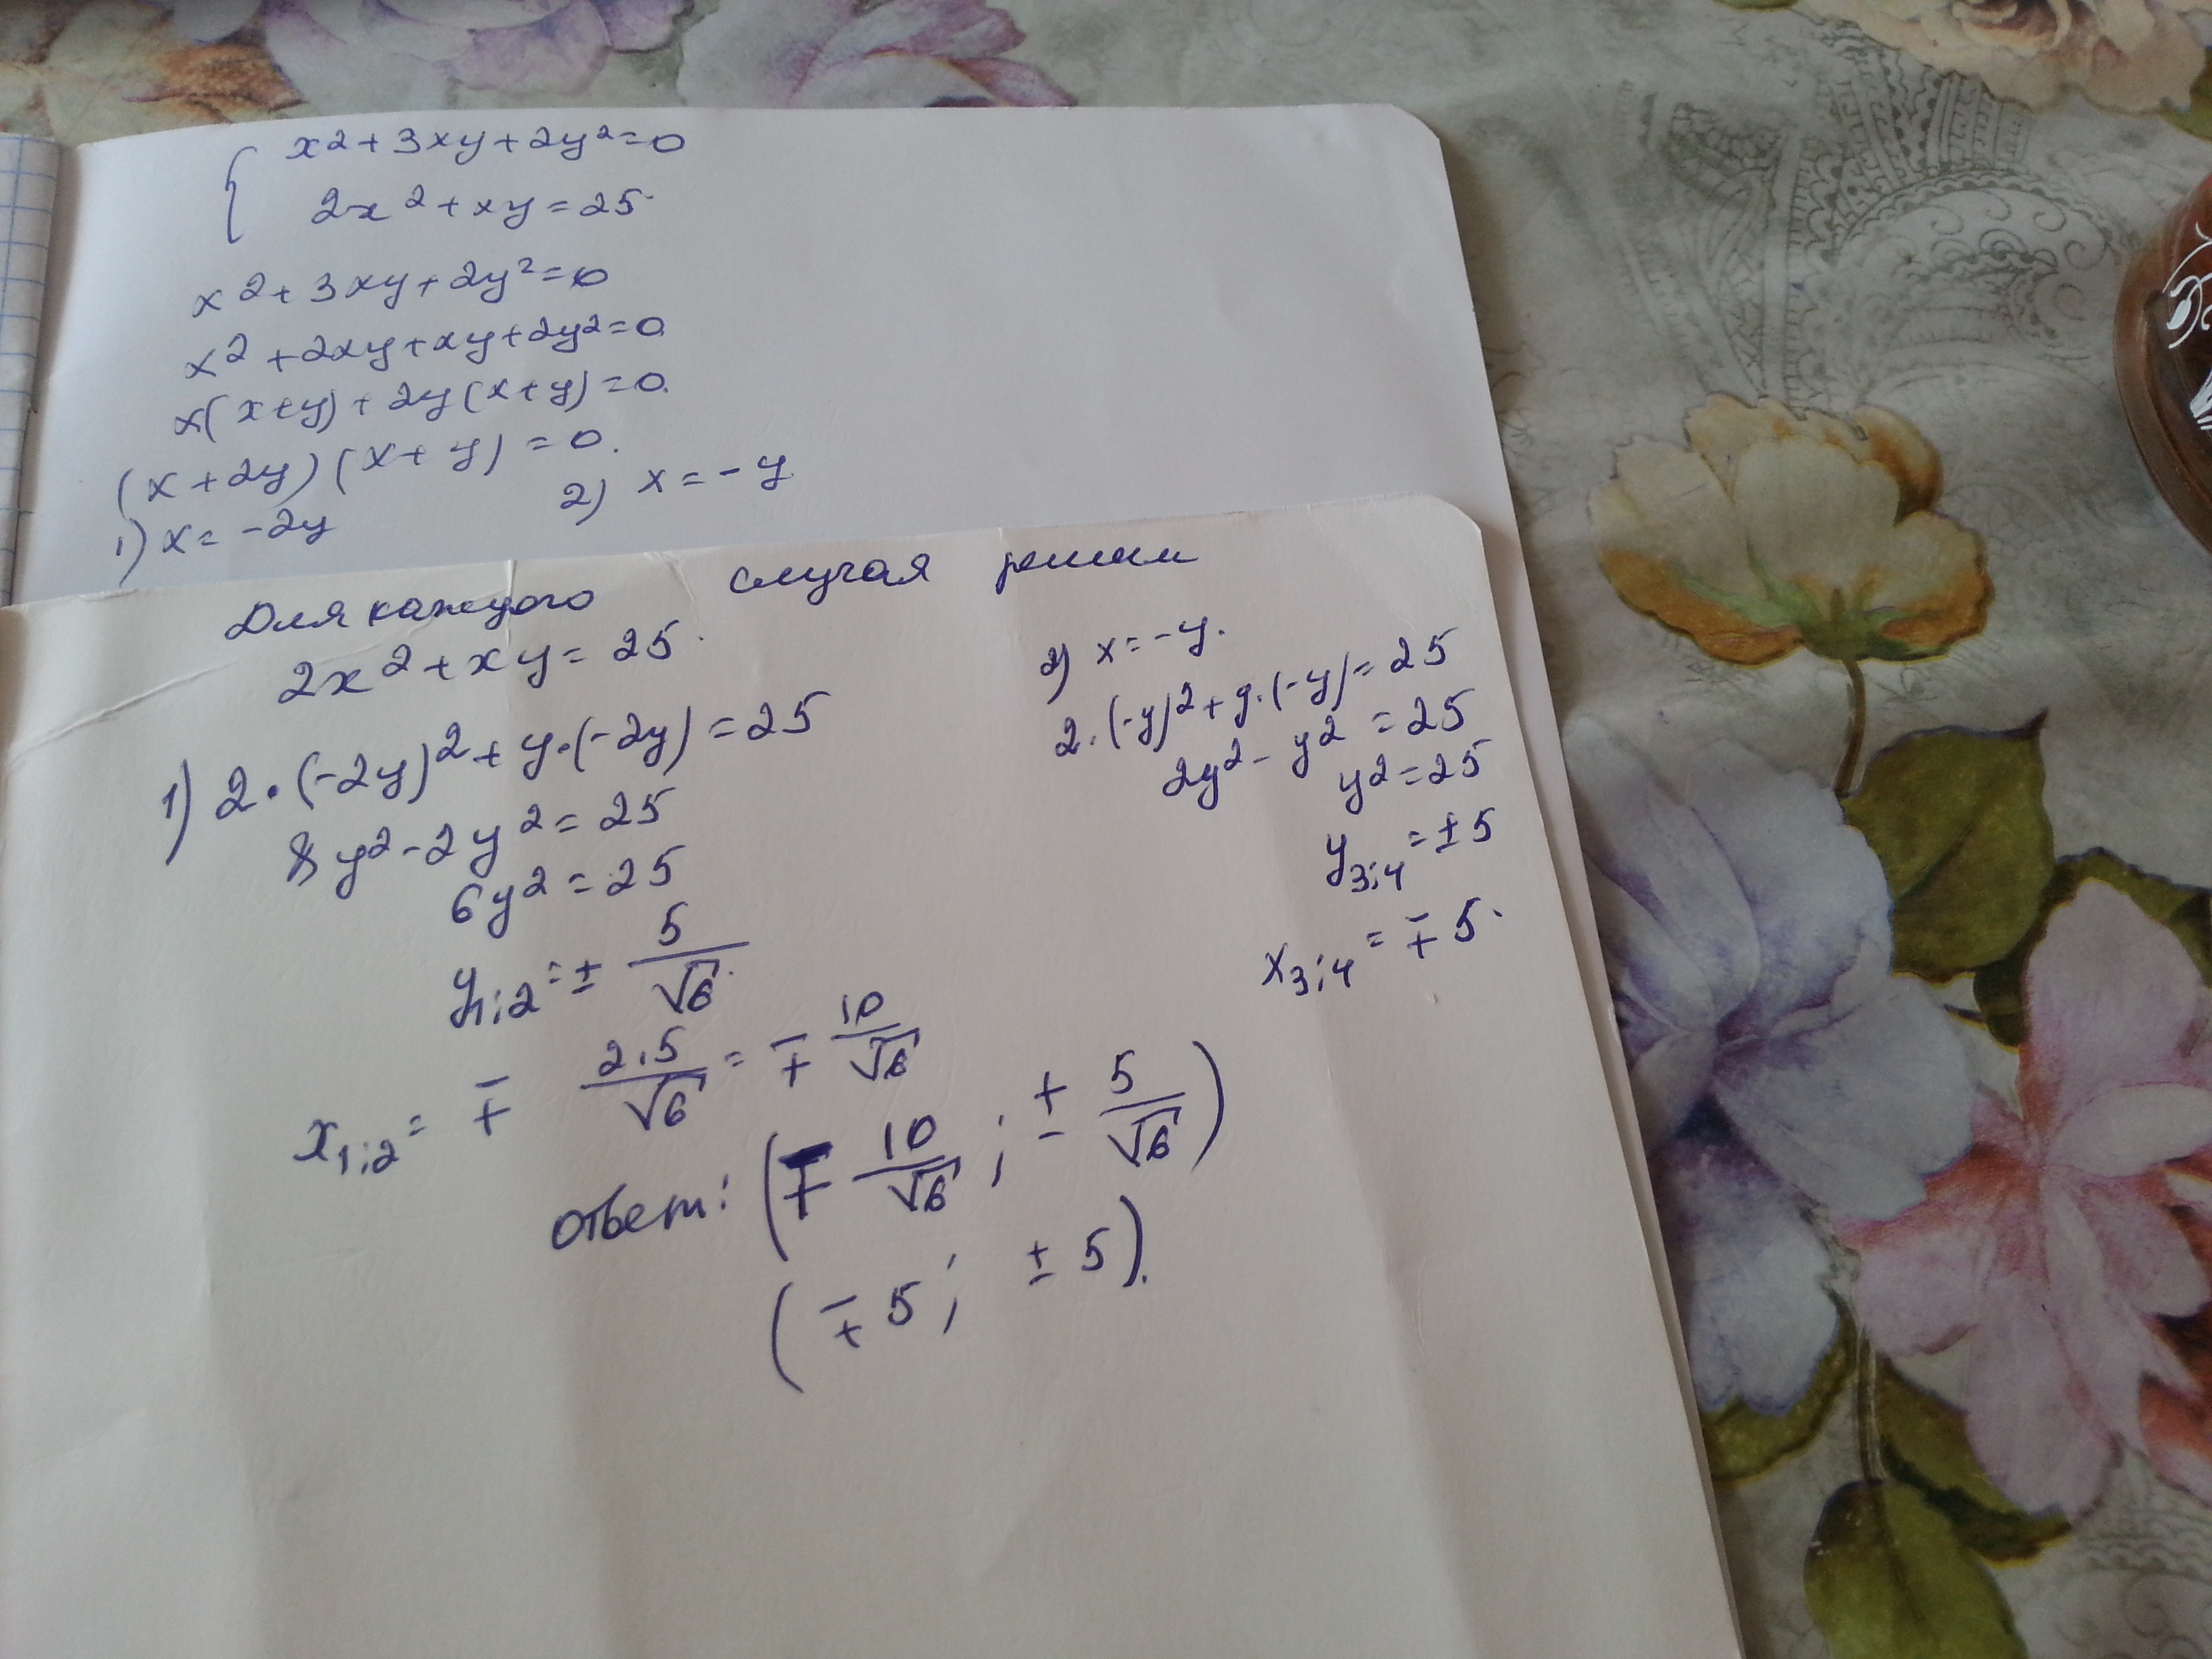 { x² + 3xy + 2y² = 0
2x² + xy = 25
x² + 3xy + 2y² = 0
x² + 2xy + xy + 2y² = 0
x(x+y) + 2y(x+y) = 0.
(x + 2y)(x + y) = 0.
1) x = -2y 2) x = -y
Для каждого случая решим
2x² + xy = 25.
1) 2·(-2y)² + y·(-2y) = 25
8y² - 2y² = 25
6y² = 25
y₁;₂ = ± 5/√6
x₁;₂ = ∓ 2·5/√6 = ∓ 10/√6
2) x = -y.
2·(-y)² + y·(-y) = 25
2y² - y² = 25
y² = 25
y₃;₄ = ±5
x₃;₄ = ∓5.
ответ: (∓ 10/√6 ; ± 5/√6)
(∓5; ±5).